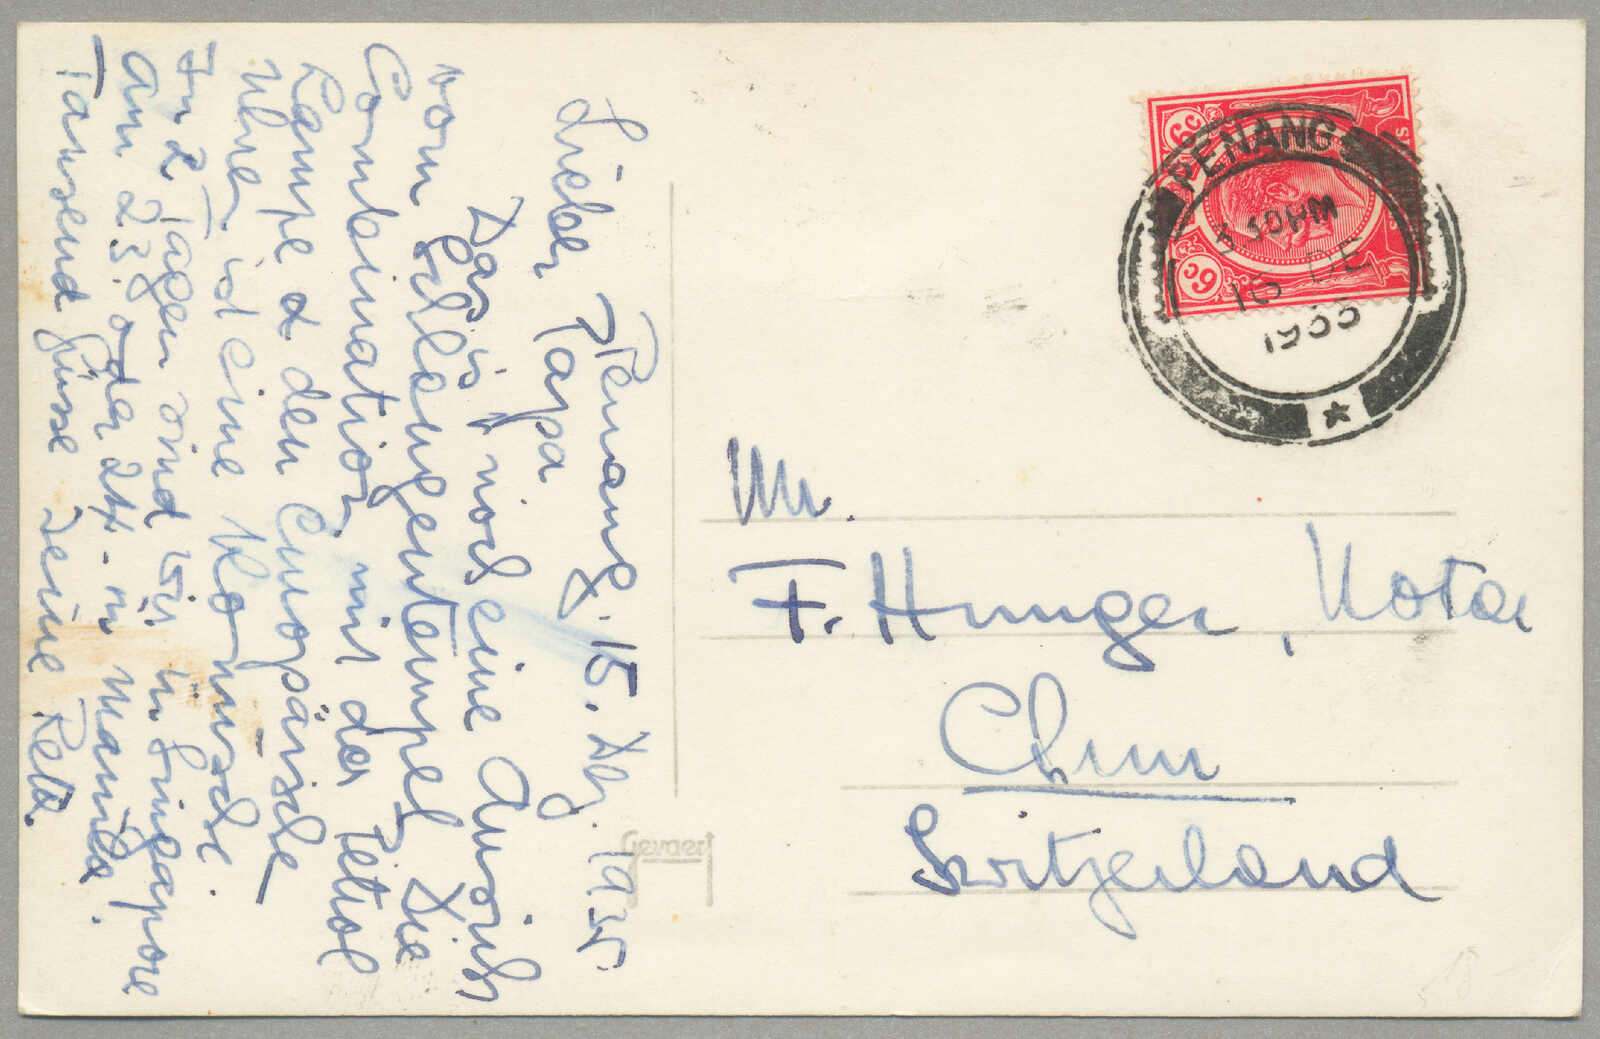 Penang. 15. Dez. 1935.
Lieber Papa
Das is noch eine Ansicht
vom Schlangentempel. Die
Combination mit der Petrol
Lampe & den Europäische
Uhren is eine Komische.
In 2 Tagen sind wir in Singapore
am 23. oder 24. in Manila.
Tausend Grüsse Deine Peta.
6c
6c
S
PENANG
3 30PM
16 DE
1935
Mr.
F. Hunger, Notar
Chur
Switzerland